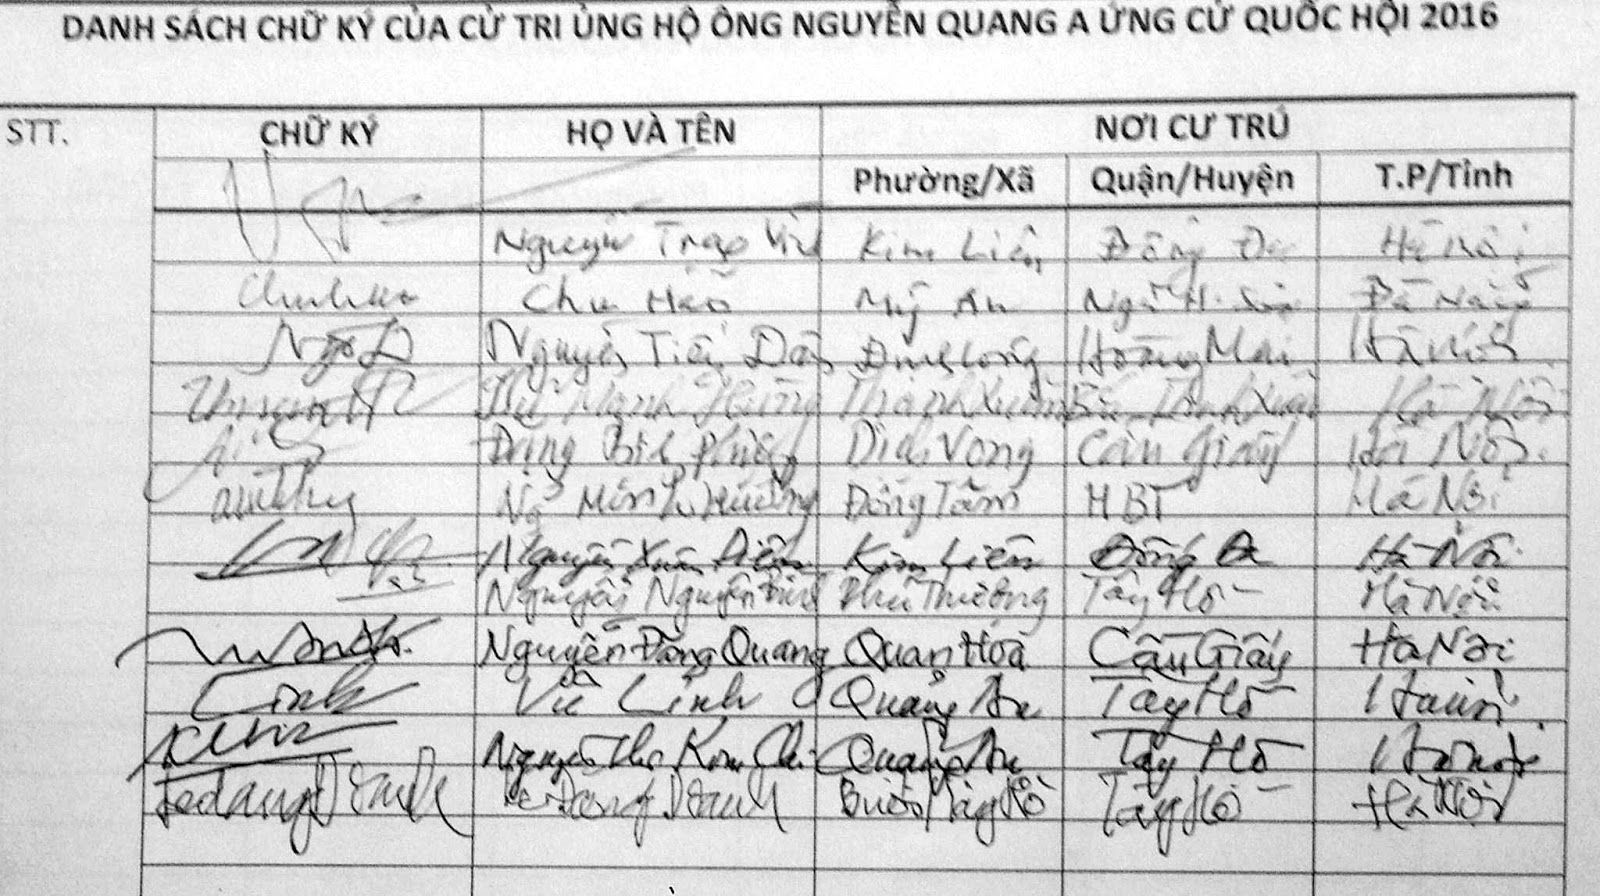 DANH SÁCH CHỮ KÝ CỦA CỬ TRI ỦNG HỘ ÔNG NGUYỄN QUANG A ỨNG CỬ QUỐC HỘI 2016
STT. CHỮ KÝ HỌ VÀ TÊN NƠI CƯ TRÚ
Phường/Xã Quận/Huyện T.P/Tỉnh
Nguyễn Kim Liên Đống Đa Hà Nội
Chu Hảo Mỹ An Đà Nẵng
Nguyễn Tiến Dân Hoàng Mai Hà Nội
Mạnh Hùng Hà Nội
Đặng Bích Phượng Dịch Vọng Cầu Giấy Hà Nội
Minh Hương Đồng Tâm HBT Hà Nội
Nguyễn Xuân Diện Kim Liên Đống Đa Hà Nội
Nguyễn Nguyên Bình Phú Thượng Tây Hồ Hà Nội
Nguyễn Đăng Quang Quan Hoa Cầu Giấy Hà Nội
Linh Vũ Linh Quảng An Tây Hồ Hà Nội
Nguyễn Thị Kim Chi Quảng An Tây Hồ Hà Nội
Ledang Doanh Lê Đăng Doanh Tây Hồ Hà Nội